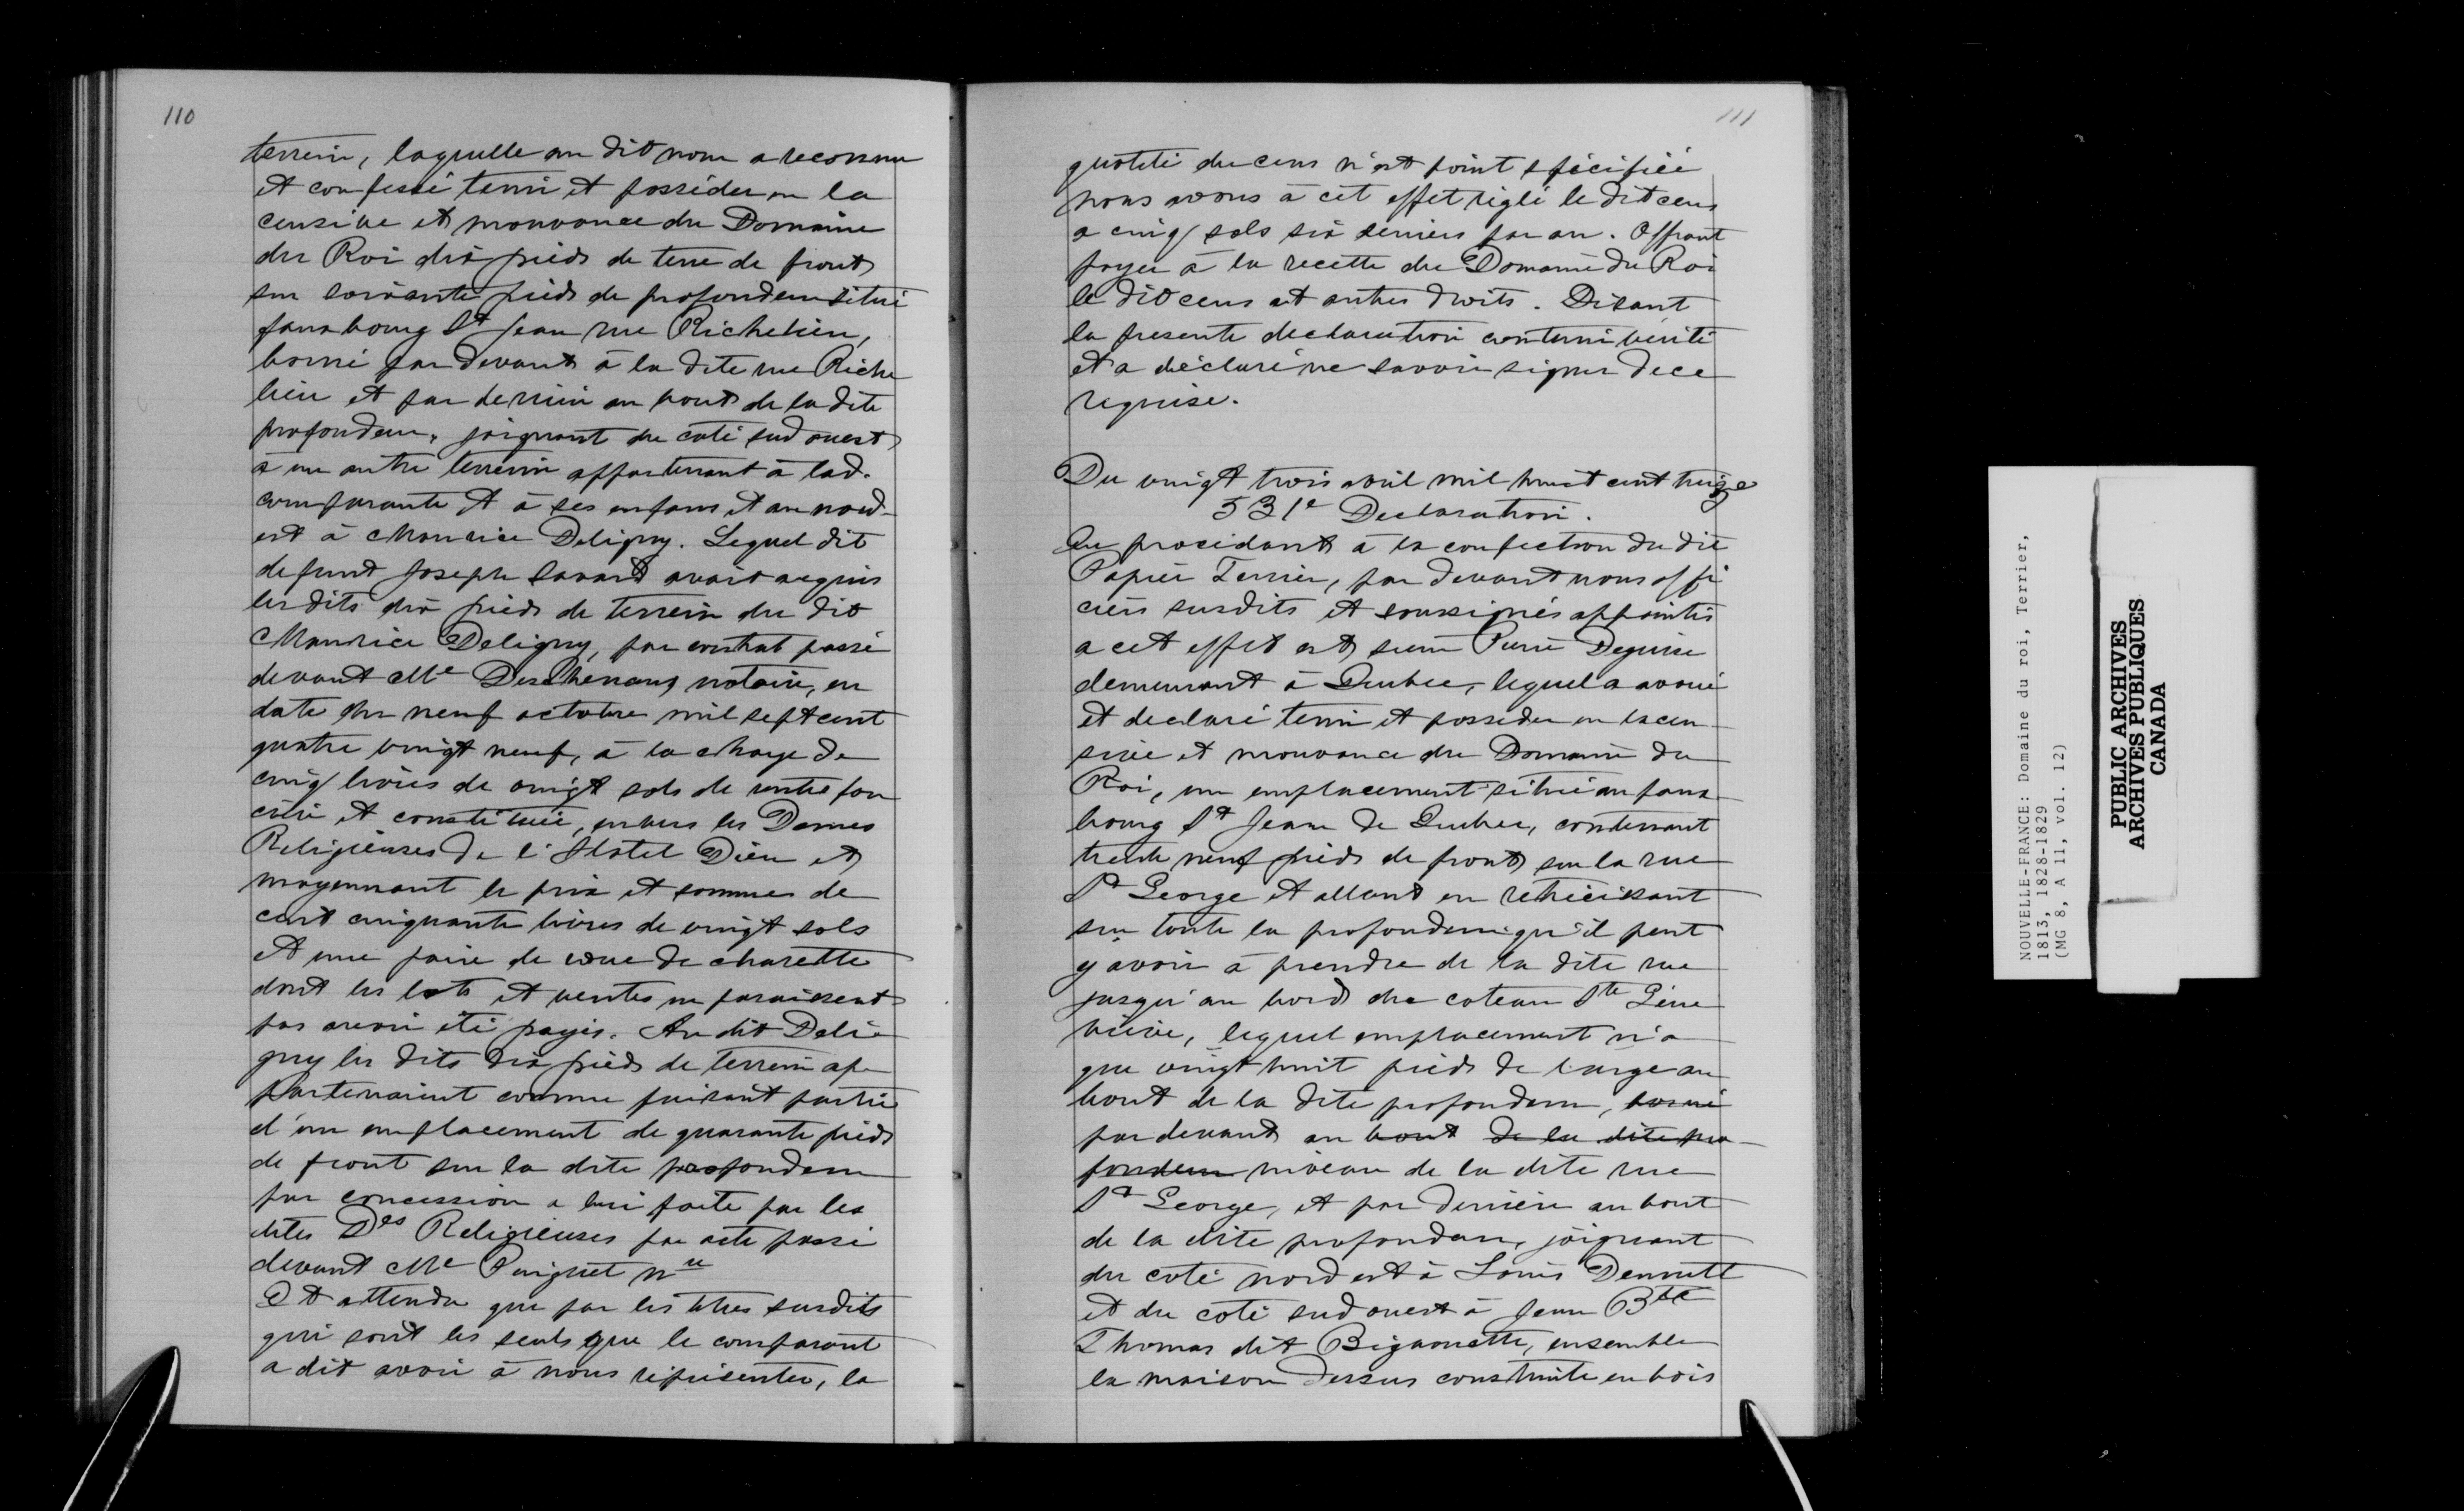 110
terrein, laquelle au dit nom a reconnu
et confessé tenir et posséder en la
censive et mouvance du Domaine
du Roi dix pieds de terre de front
sur soixante pieds de profondeur situé
faux bourg St Jean rue Richelieu,
borné par devant à la dite rue Riche
lieu et par derrière au bout de la dite
profondeur, joignant du coté sud ouest
à un autre terrein appartenant à lad.
comparante et à ses enfans et au nord-
est à Maurice Deligny. Lequel dit
defunt Joseph Savard avait acquis
les dits dix pieds de terrein du dit
Maurice Deligny, par contrat passé
devant Me Deschenaux notaire, en
date du neuf octobre mil sept cent
quatre vingt neuf, à la charge de
cinq livres de vingt sols de rente fon
cière et constituée, envers les Dames
Religieuses de l'Hotel Dieu et
moyennant le prix et sommes de
cent cinquante livres de vingt sols
et une paire de roue de charette
dont les lots et ventes ne paraissent
pas avoir été payés. Au dit Deli-
gny les dits dix pieds de terrein ap-
partenaient comme faisant partie
d'un emplacement de quarante pieds
de front sur la dite profondeur
par concession a lui faite par les
dites Des Religieuses par acte passé
devant Me Panguet nre
Et attendu que par les titres susdits
qui sont les seuls que le comparant
a dit avoir à nous réprésenter, la
111
quotité du cens n'est point spécifiée
nous avons à cet effet réglé le dit cens
a cinq sols six deniers par an. Offrant
payer à la recette du Domaine du Roi
le dit cens et autres droits. Disant
la presente declaration contenir vérité
et a déclaré ne savoir signer de ce
requise.
Du vingt trois avril mil huit cent treize
531e Declaration.
En procédant à la confection du dit
Papier Terrier, par devant nous offi
ciers susdits et soussignés appointés
a cet effet est sieur Pierre Deguise
demeurant à Quebec, lequel a avoué
et declaré tenir et posseder en la cen-
sive et mouvance du Domaine du
Roi, un emplacement situé au faux
bourg St Jean de Quebec, contenant
trente neuf pieds de front sur la rue
St George et allant en retrécissant
sur toute la profondeur qu'il peut
y avoir à prendre de la dite rue
jusqu'au bord du coteau Ste Géne
viève, lequel emplacement n'a
que vingt huit pieds de large au
bout de la dite profondeur, borné
par devant au bout de la dite pro-
fondeur niveau de la dite rue
St George, et par derrière au bout
de la dite profondeur, joignant
du coté nord est à Louis
et du coté sud ouest à Jean Bte
Thomas dit Bigaouette, ensemble
la maison dessus construite en bois
NOUVELLE-FRANCE: Domaine du roi, Terrier,
1813, 1828-1829
(MG 8, A 11, vol. 12)
PUBLIC ARCHIVES
ARCHIVES PUBLIQUES
CANADA